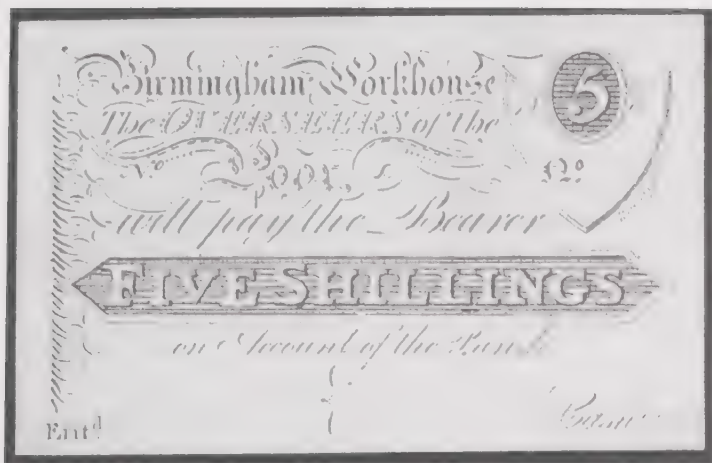 Birmingham Workhouse 5
The OVERSEERS of the
No POOR No
will pay the Bearer
FIVE SHILLINGS
on Account of the
Entd